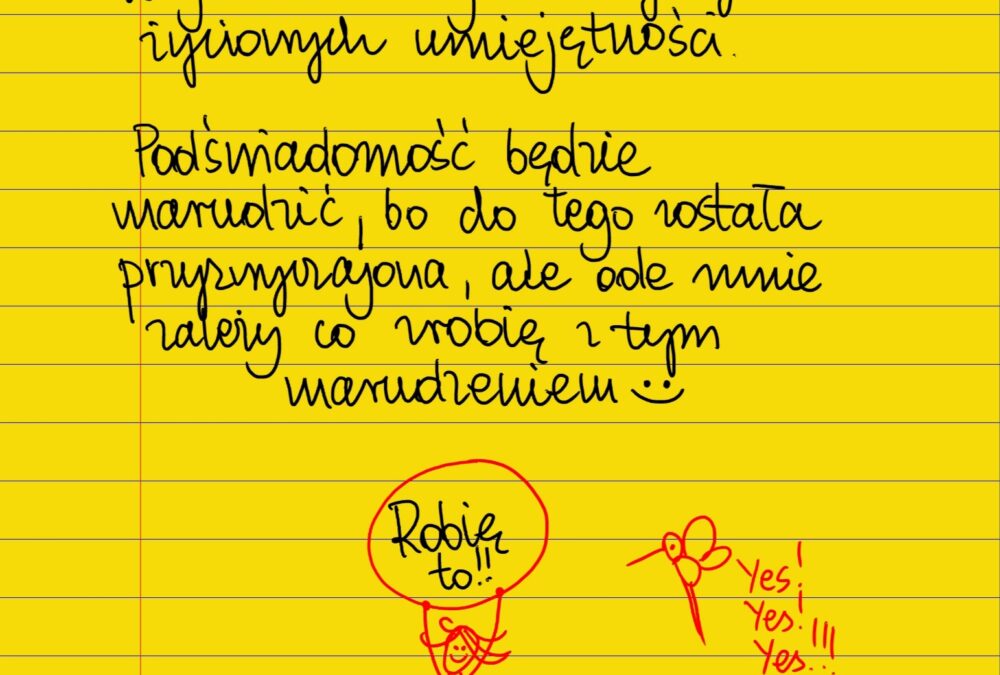 życiowych umiejętności.
Podświadomość będzie
marudzić, bo do tego została
przyzwyczajona, ale ode mnie
zależy co zrobię z tym
marudzeniem
Robię
to!!
Yes!
Yes!
Yes!!!